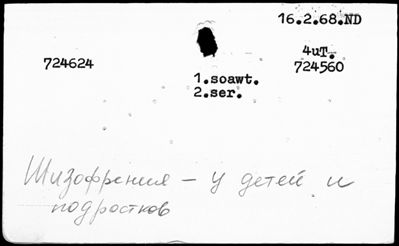 16.2.68.ND
724624
4uT.
724560
1.soawt.
2.ser.
Шизофрения – у детей и
подростков